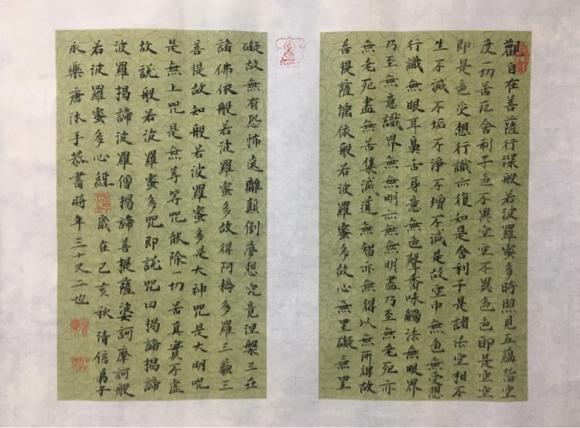 觀自在菩薩行深般若波羅蜜多時照見五蘊皆空
度一切苦厄舍利子色不異空空不異色色即是空空
即是色受想行識亦復如是舍利子是諸法空相不
生不滅不垢不淨不增不減是故空中無色無受想
行識無眼耳鼻舌身意無色聲香味觸法無眼界
乃至無意識界無無明亦無無明盡乃至無老死亦
無老死盡無苦集滅道無智亦無得以無所得故
菩提薩埵依般若波羅蜜多故心無罣礙無罣
礙故無有恐怖遠離顛倒夢想究竟涅槃三世
諸佛依般若波羅蜜多故得阿耨多羅三藐三
菩提故知般若波羅蜜多是大神咒是大明咒
是無上咒是無等等咒能除一切苦真實不虛
故說般若波羅蜜多咒即說咒曰揭諦揭諦
波羅揭諦波羅僧揭諦菩提薩婆訶摩訶般
若波羅蜜多心經歲在己亥秋清信弟子
永樂唐沐手恭書時年三十又二也